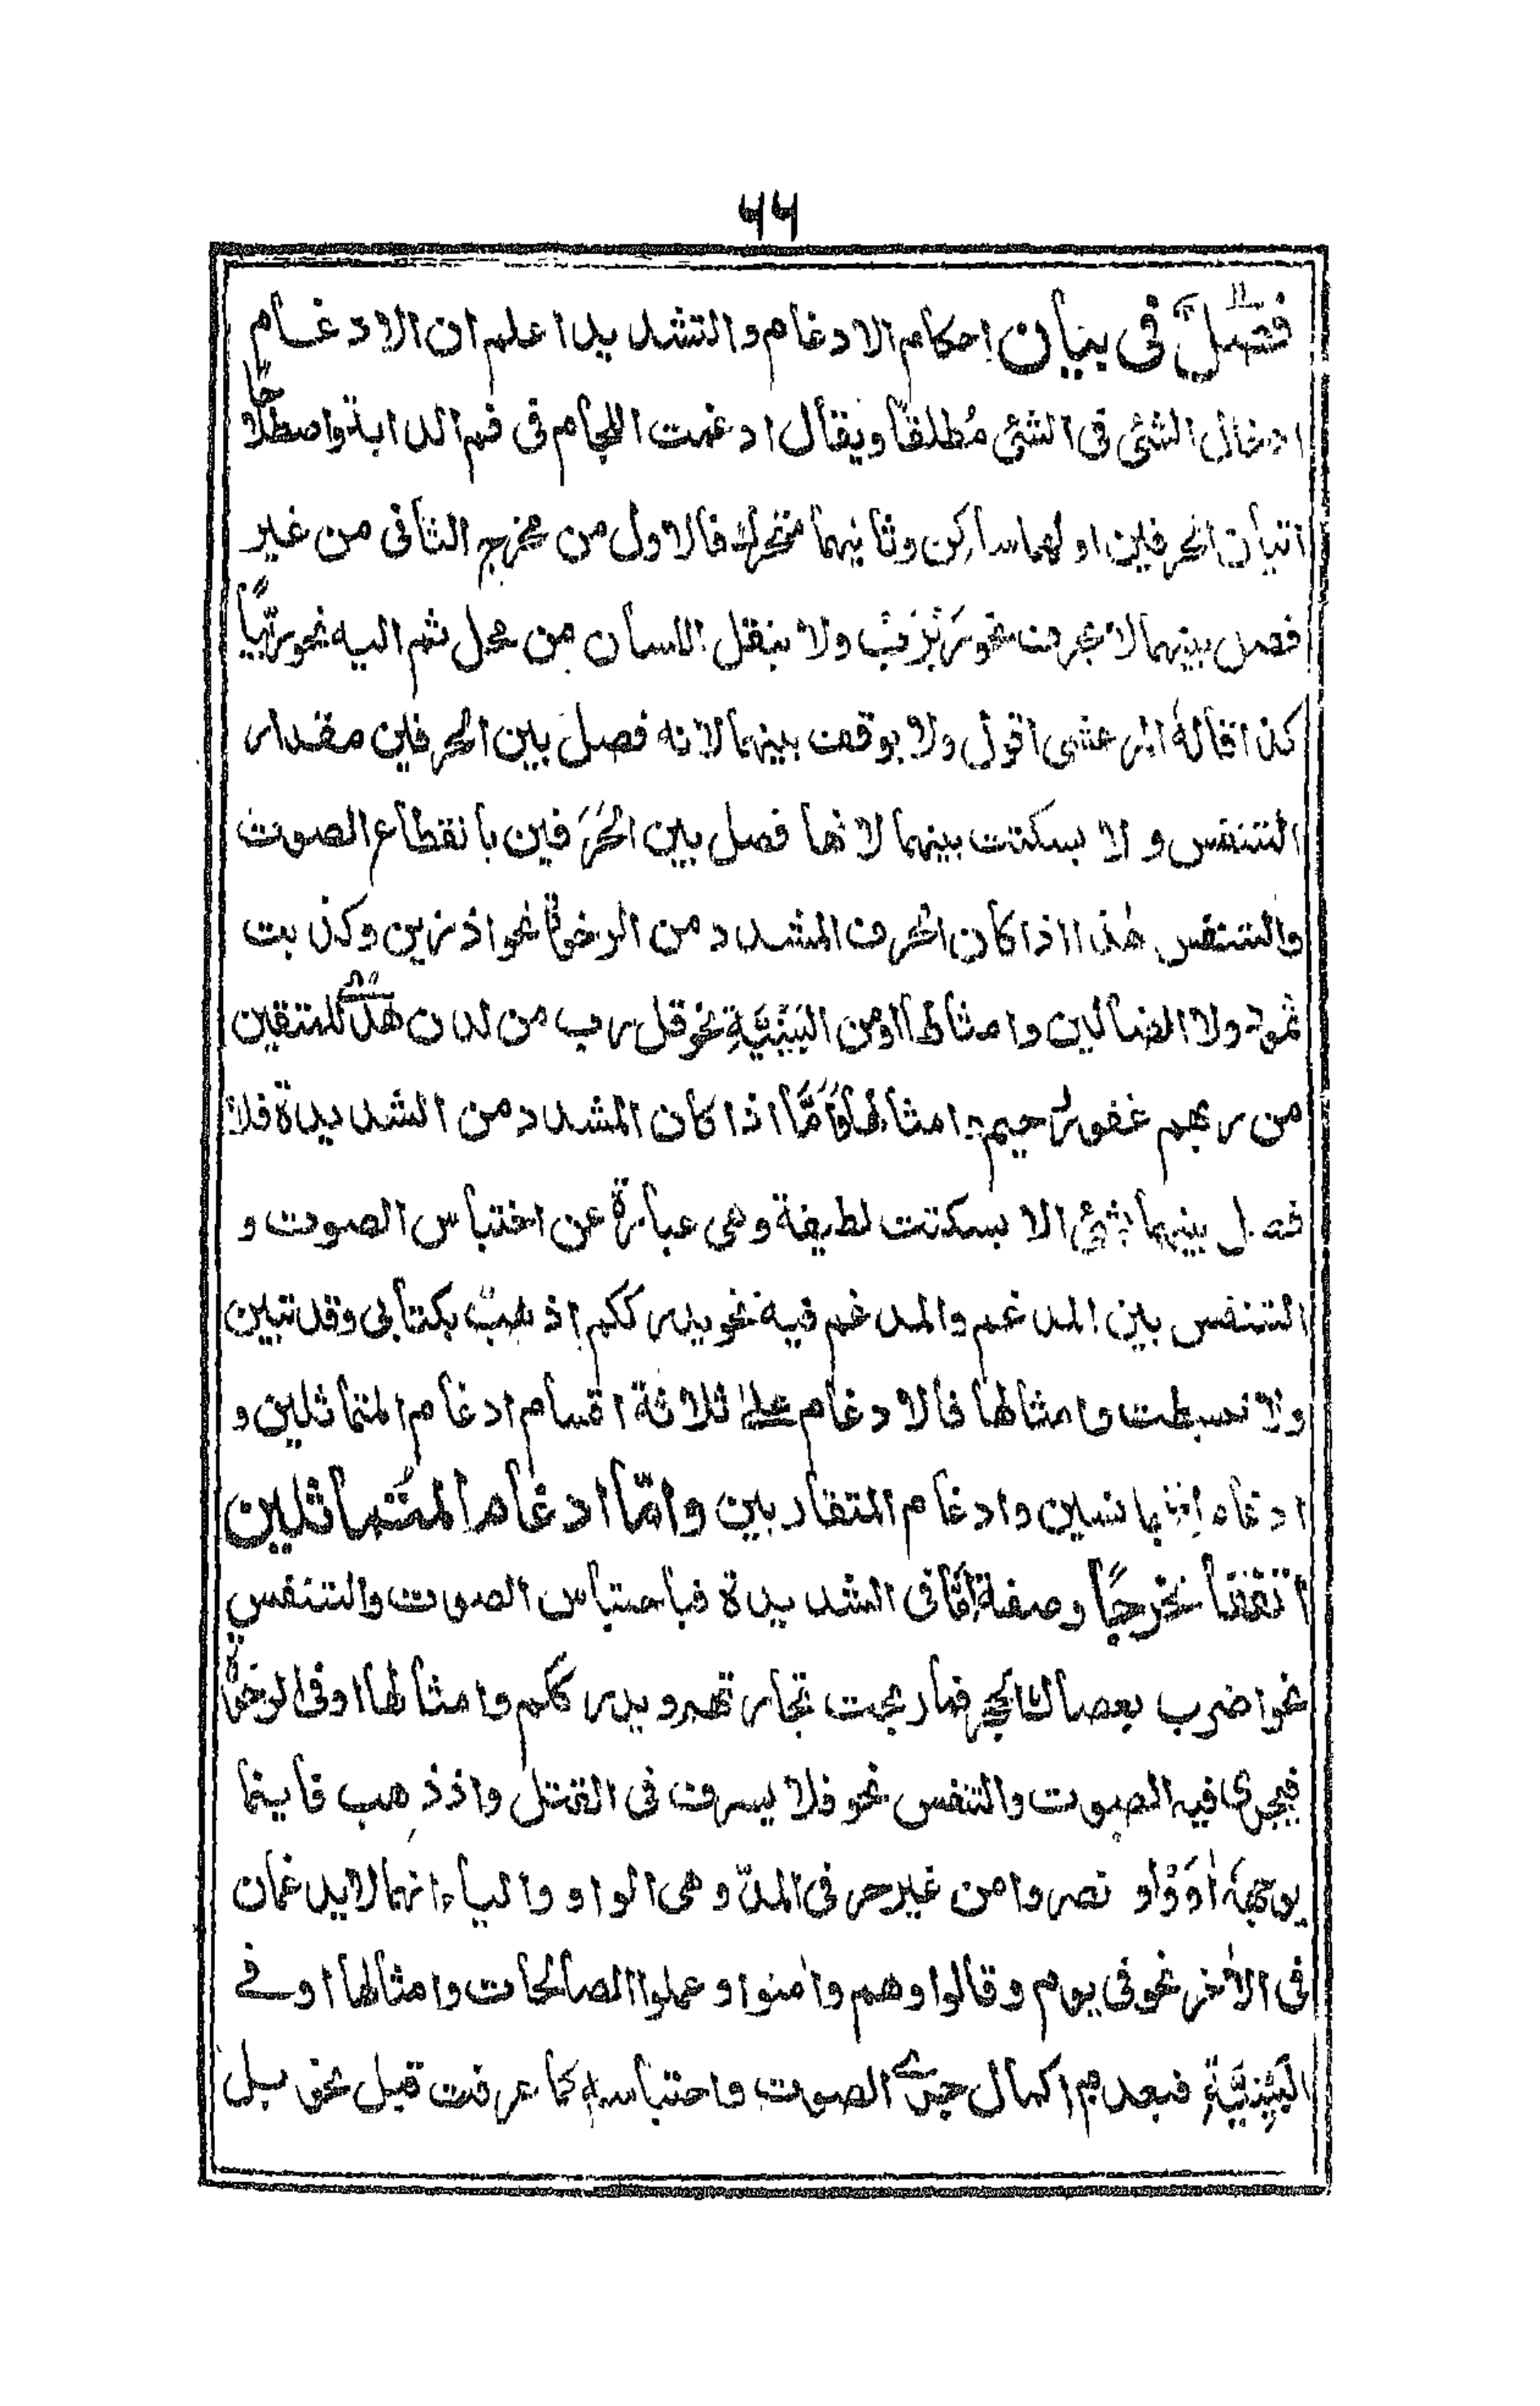 ۶۶
فصل فى بيان احكام الادغام والتشديد اعلم ان الادغام
ادخال الشئ فى الشئ مُطلقًا ويقال ادغمت اللجام فى فم الدابة واصطلاحًا
اتيان الحرفين اولهما ساكن وثانيهما متحرك فالاول من مخرج الثانى من غير
فصل بينهما لا بحرف نحو ولا بنقل اللسان من محل ثم اليه نحو
كذا قاله المرعشى اقول ولا بوقف بينهما لانه فصل بين الحرفين مقدار
التنفس ولا بسكتت بينهما لانها فصل بين الحَرفين بانقطاع الصوت
والتنفس هٰذا اذا كان الحرف المشدد من الرخوة نحو اذ زين وكذبت
ثمود ولا الضالين وامثالها اومن البَيْنِيَّةِ نحو قل رب من لدن هدًى للمتقين
من ربهم غفور رحيم وامثالها وَاَمَّا اذا كان المشدد من الشديدة فلا
فصل بينهما بشئ الا بسكتت لطيفة وهى عبارة عن اختباس الصوت و
التنفس بين المدغم والمدغم فيه نحو يدرككم اذهبْ بكتابى وقد تبين
ولا نسبطت وامثالها فالادغام على ثلاثة اقسام ادغام المتماثلين و
ادغام المتجانسين وادغام المتقاربين وامّا ادغام المتماثلين
اتفقا مخرجًا وصفة اَمّا فى الشديدة فباحتباس الصوت والتنفس
نحو اضرب بعصاك الحجر فما ربحت تجارتهم ويدرككم وامثالها اوفى الرخوة
فيجرى فيه الصوت والتنفس نحو فلا يسرف فى القتل واذ ذهب فاينما
يوجهه اٰوَوْا و نصروا من غير حرفى المدّ وهى الواو والياء انهما لايدغمان
فى الاٰخر نحو فى يوم وقالوا وهم واٰمنوا وعملوا الصالحات وامثالها اوفى
البَيْنِيَّةِ فبعدم اكمال جرى الصوت واحتباسه كما عرفت قبل نحو بل